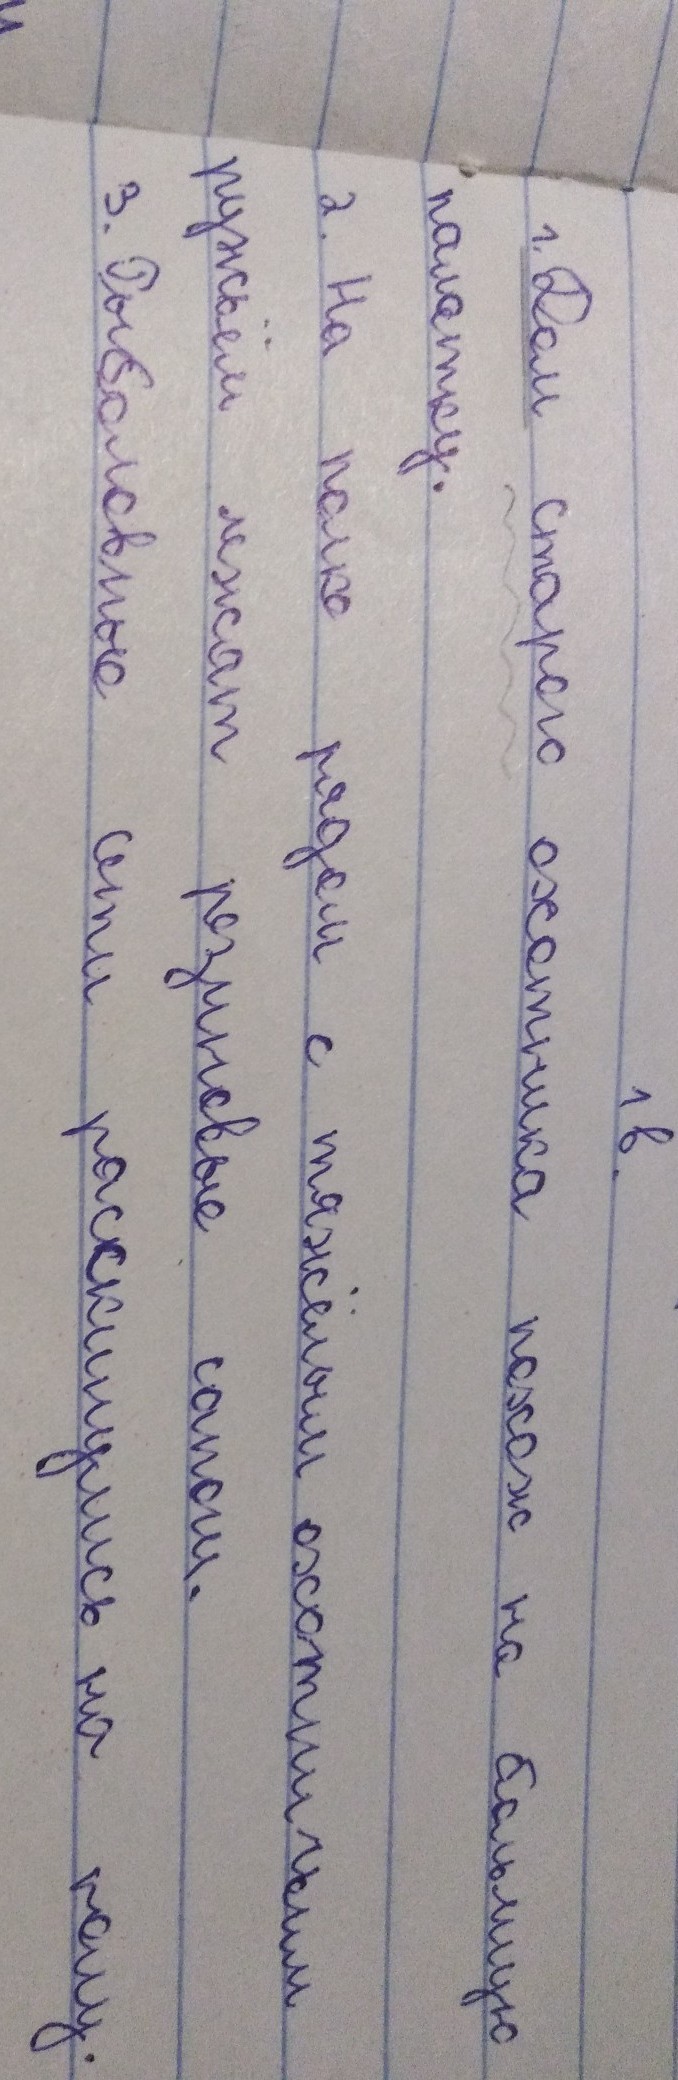 1 в.
1. Дом старого охотника похож на большую
палатку.
2. На полке рядом с тяжёлым охотничьим
ружьём лежат резиновые сапоги.
3. Рыболовные сети раскинулись на полу.